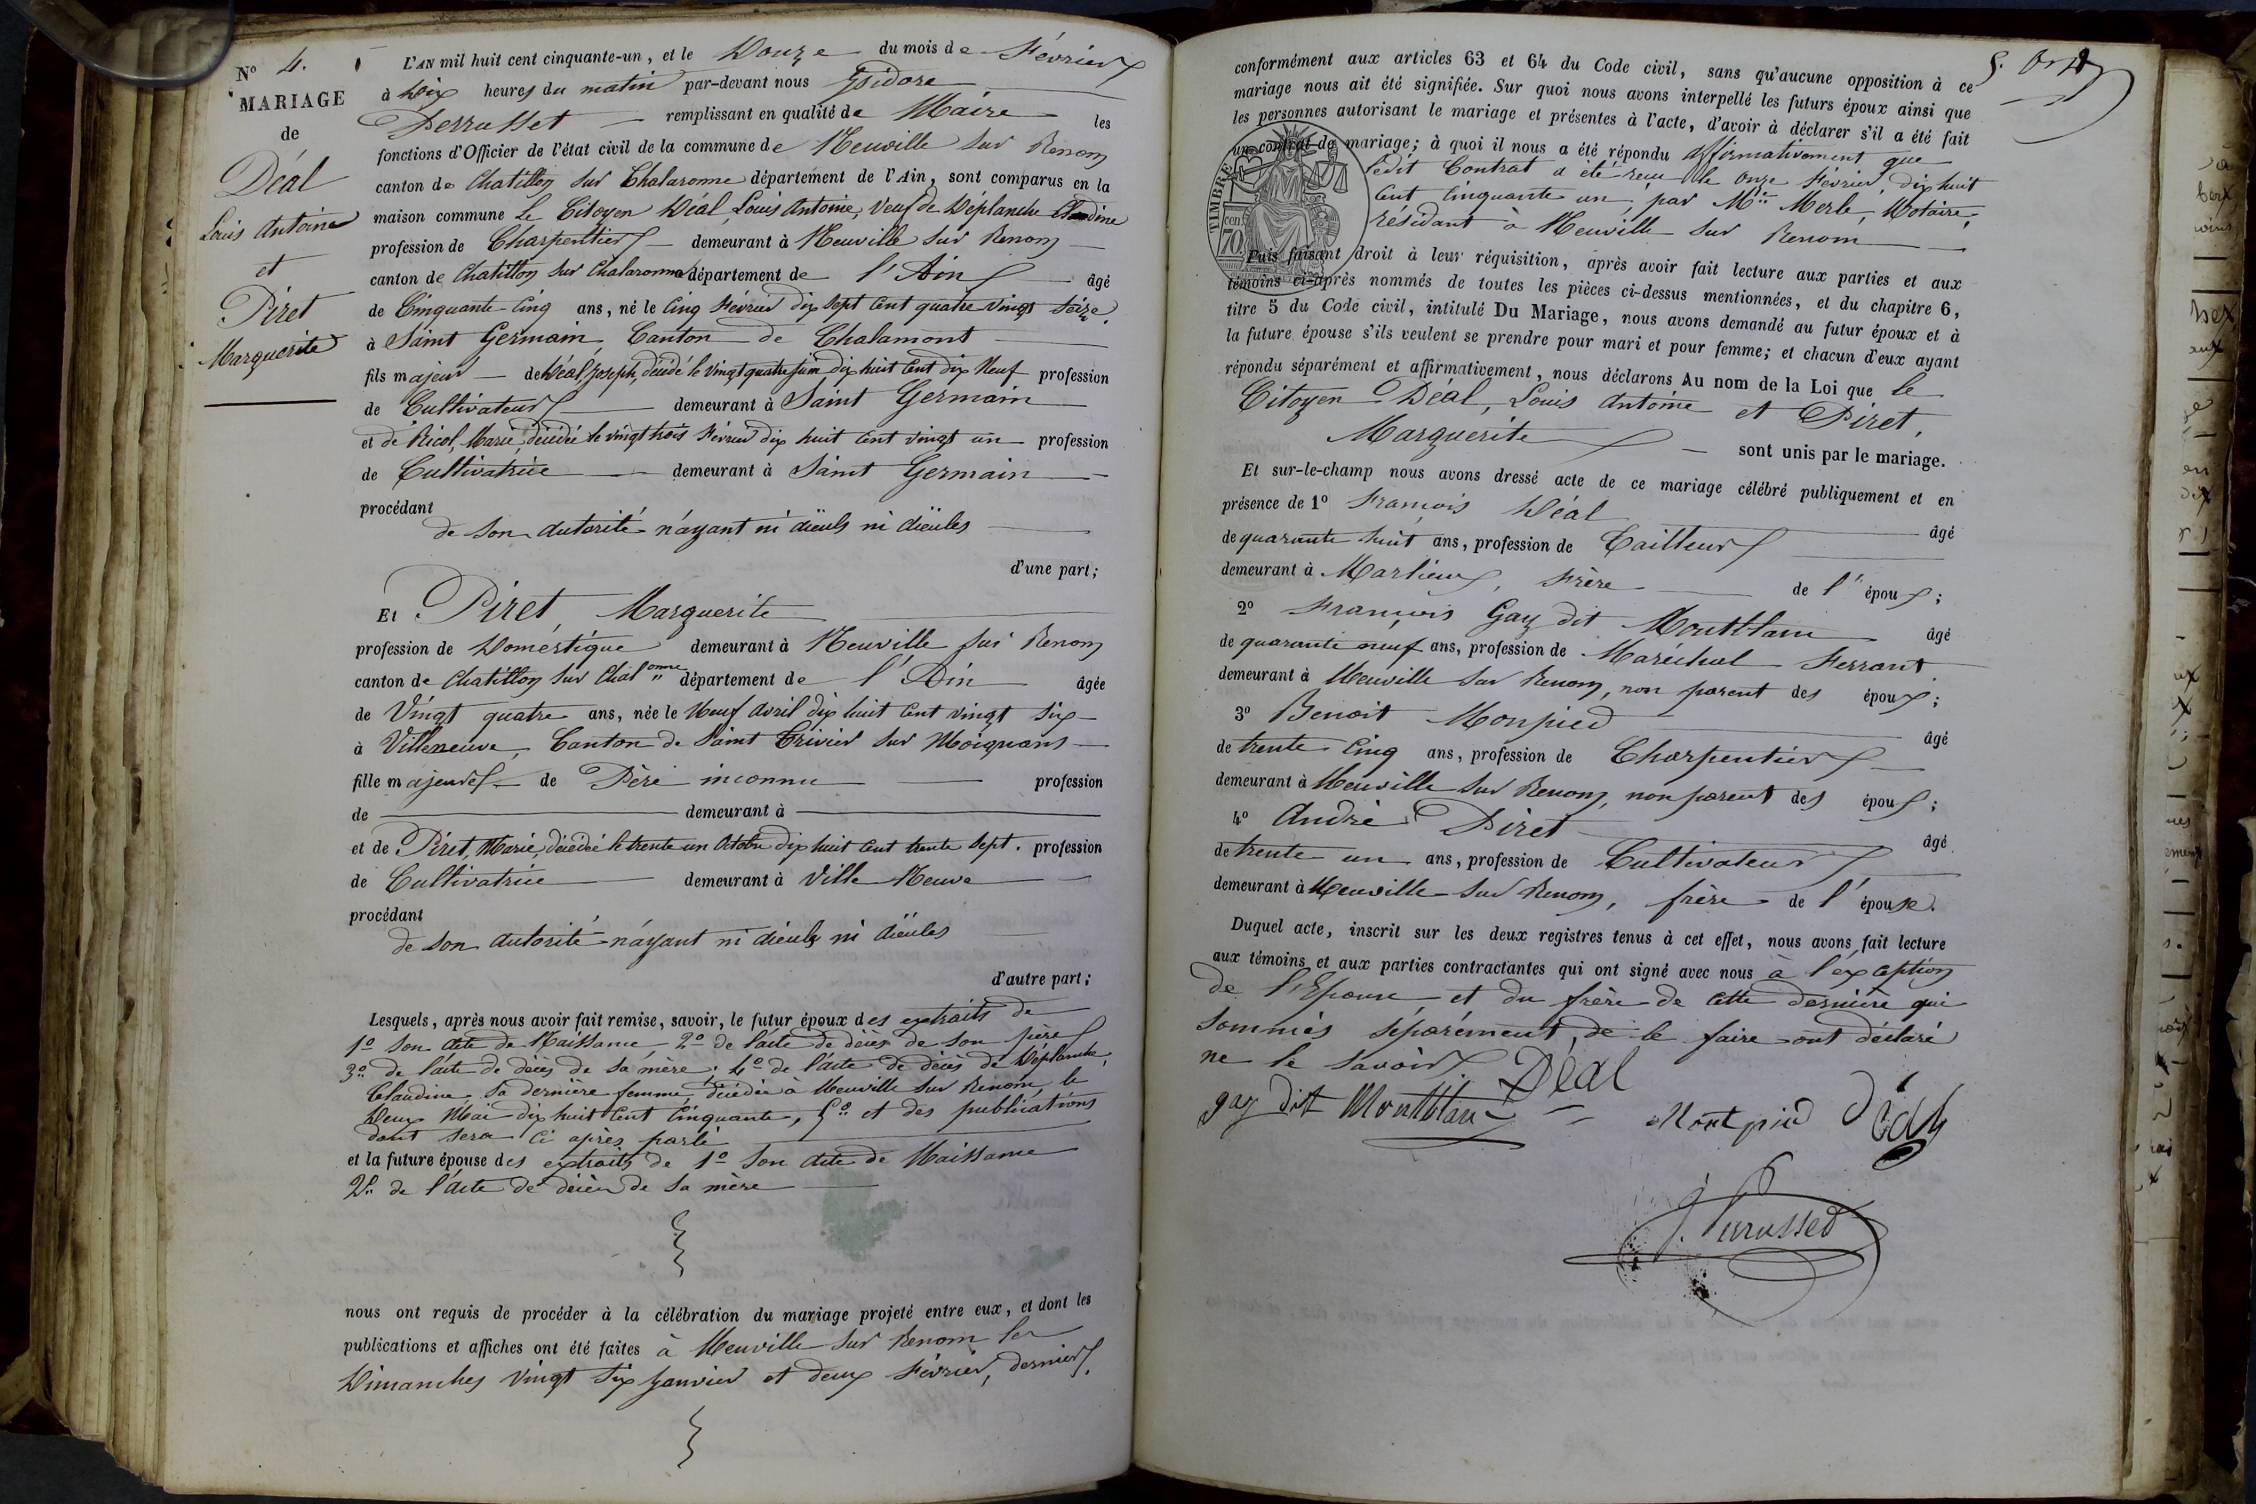 N° 4.
MARIAGE
de
Déal
Louis Antoine
et
Piret
Marguerite
L'AN mil huit cent cinquante-un, et le Douze du mois de Février
à Dix heures du matin par-devant nous Ysidore
Perrusset remplissant en qualité de Maire les
fonctions d'Officier de l'état civil de la commune de Neuville sur Renom
canton de Chatillon sur Chalaronne département de l'Ain, sont comparus en la
maison commune le Citoyen Déal, Louis Antoine, Veuf de Déplanche Claudine
profession de Charpentier demeurant à Neuville sur Renom
canton de Chatillon sur Chalaronne département de l'Ain âgé
de Cinquante Cinq ans, né le Cinq Février dix sept cent quatre vingt seize.
à Saint Germain Canton de Chalamont
fils majeur de Déal, Joseph, décédé le vingt quatre juin dix huit cent dix Neuf profession
de Cultivateur demeurant à Saint Germain
et de Ricol, Marie, décédée le vingt trois Février dix huit cent vingt un profession
de Cultivatrice demeurant à Saint Germain
procédant
de son autorité n'ayant ni aïeuls ni aïeules
d'une part;
Et Piret, Marguerite
profession de Doméstique demeurant à Neuville sur Renom
canton de Chatillon sur Chalonne département de l'Ain âgée
de Vingt quatre ans, née le Neuf Avril dix huit cent vingt six
à Villeneuve, Canton de Saint Trivier sur Moignans
fille majeure de Père inconnu profession
de demeurant à
et de Piret, Marie, décédée le trente un Octobre dix huit cent trente sept. profession
de Cultivatrice demeurant à Ville Neuve
procédant
de son autorité n'ayant ni aïeuls ni aïeules
d'autre part;
Lesquels, après nous avoir fait remise, savoir, le futur époux des extraits de
1° son acte de Naissance, 2° de l'acte de décès de son père
3° de l'acte de décès de sa mère; 4° de l'acte de décès de Déplanche,
Claudine, sa dernière femme, décédée à Neuville sur Renom, le
Deux Mai dix huit Cent Cinquante, 5° et des publications
dont sera ci après parlé
et la future épouse des extraits de 1° son acte de Naissance
2° de l'acte de décès de sa mère
nous ont requis de procéder à la célébration du mariage projeté entre eux, et dont les
publications et affiches ont été faites à Neuville sur Renom les
Dimanches vingt six Janvier et deux Février, dernier.
conformément aux articles 63 et 64 du Code civil, sans qu'aucune opposition à ce
mariage nous ait été signifiée. Sur quoi nous avons interpellé les futurs époux ainsi que
les personnes autorisant le mariage et présentes à l'acte, d'avoir à déclarer s'il a été fait
un contrat de mariage; à quoi il nous a été répondu affirmativement que
ledit Contrat a été reçu le onze Février, dix huit
Cent Cinquante un, par Mtre Merle, Notaire,
résidant à Neuville sur Renom
TIMBRE
cen.
70
Puis faisant droit à leur réquisition, après avoir fait lecture aux parties et aux
témoins ci-après nommés de toutes les pièces ci-dessus mentionnées, et du chapitre 6,
titre 5 du Code civil, intitulé Du Mariage, nous avons demandé au futur époux et à
la future épouse s'ils veulent se prendre pour mari et pour femme; et chacun d'eux ayant
répondu séparément et affirmativement, nous déclarons Au nom de la Loi que le
Citoyen Déal, Louis Antoine et Piret,
Marguerite sont unis par le mariage.
Et sur-le-champ nous avons dressé acte de ce mariage célébré publiquement et en
présence de 1° François Déal âgé
de quarante huit ans, profession de Tailleur
demeurant à Marlieux, Frère de l'époux;
2° François Gay dit Montblanc âgé
de quarante neuf ans, profession de Maréchal Ferrant
demeurant à Neuville sur Renom, non parent des époux;
3° Benoit Monpied âgé
de trente Cinq ans, profession de Charpentier
demeurant à Neuville sur Renom, non parent des époux;
4° André Piret âgé
de trente un ans, profession de Cultivateur
demeurant à Neuville sur Renom, frère de l'épouse.
Duquel acte, inscrit sur les deux registres tenus à cet effet, nous avons fait lecture
aux témoins et aux parties contractantes qui ont signé avec nous à l'éxception
de l'Epouse et du frère de cette dernière qui
sommés séparément, de le faire ont déclaré
ne le savoir
Déal
gay dit Montblanc Montpied Déal
J. Perusset